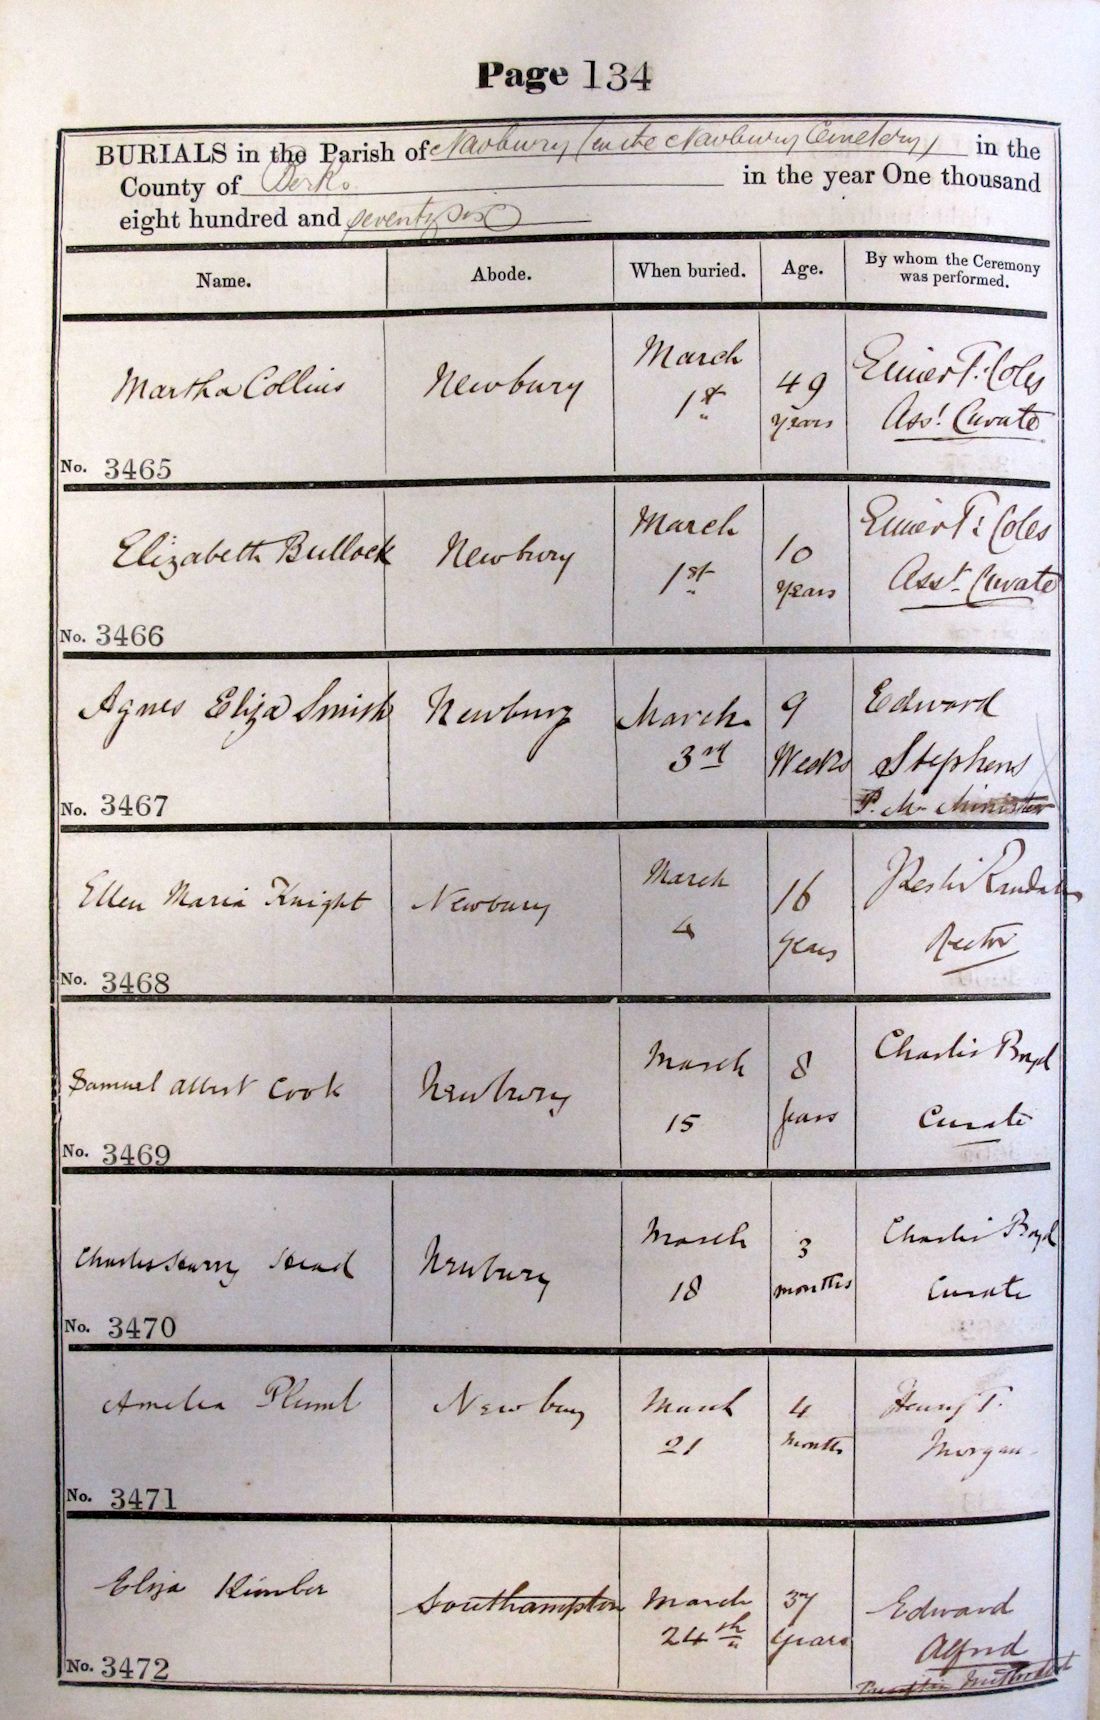 Page 134
BURIALS in the Parish of Newbury (in the Newbury Cemetery) in the
County of Berks in the year One thousand
eight hundred and seventy six
Name. Abode. When buried. Age. By whom the Ceremony was performed.
Martha Collins Newbury March 1st 49 years T. Coles Asst. Curate
No. 3465
Elizabeth Bullock Newbury March 1st 10 years T. Coles Asst. Curate
No. 3466
Agnes Eliza Smith Newbury March 3rd 9 Weeks Edward Stephens P. M. Minister
No. 3467
Ellen Maria Knight Newbury March 4 16 years Randall Rector
No. 3468
Samuel Albert Cook Newbury March 15 8 years Charles Boyd Curate
No. 3469
Charles Henry Head Newbury March 18 3 months Charles Boyd Curate
No. 3470
Amelia Newbury March 21 4 months Henry T. Morgan
No. 3471
Eliza Kimber Southampton March 24th 37 years Edward Alfred Methodist
No. 3472